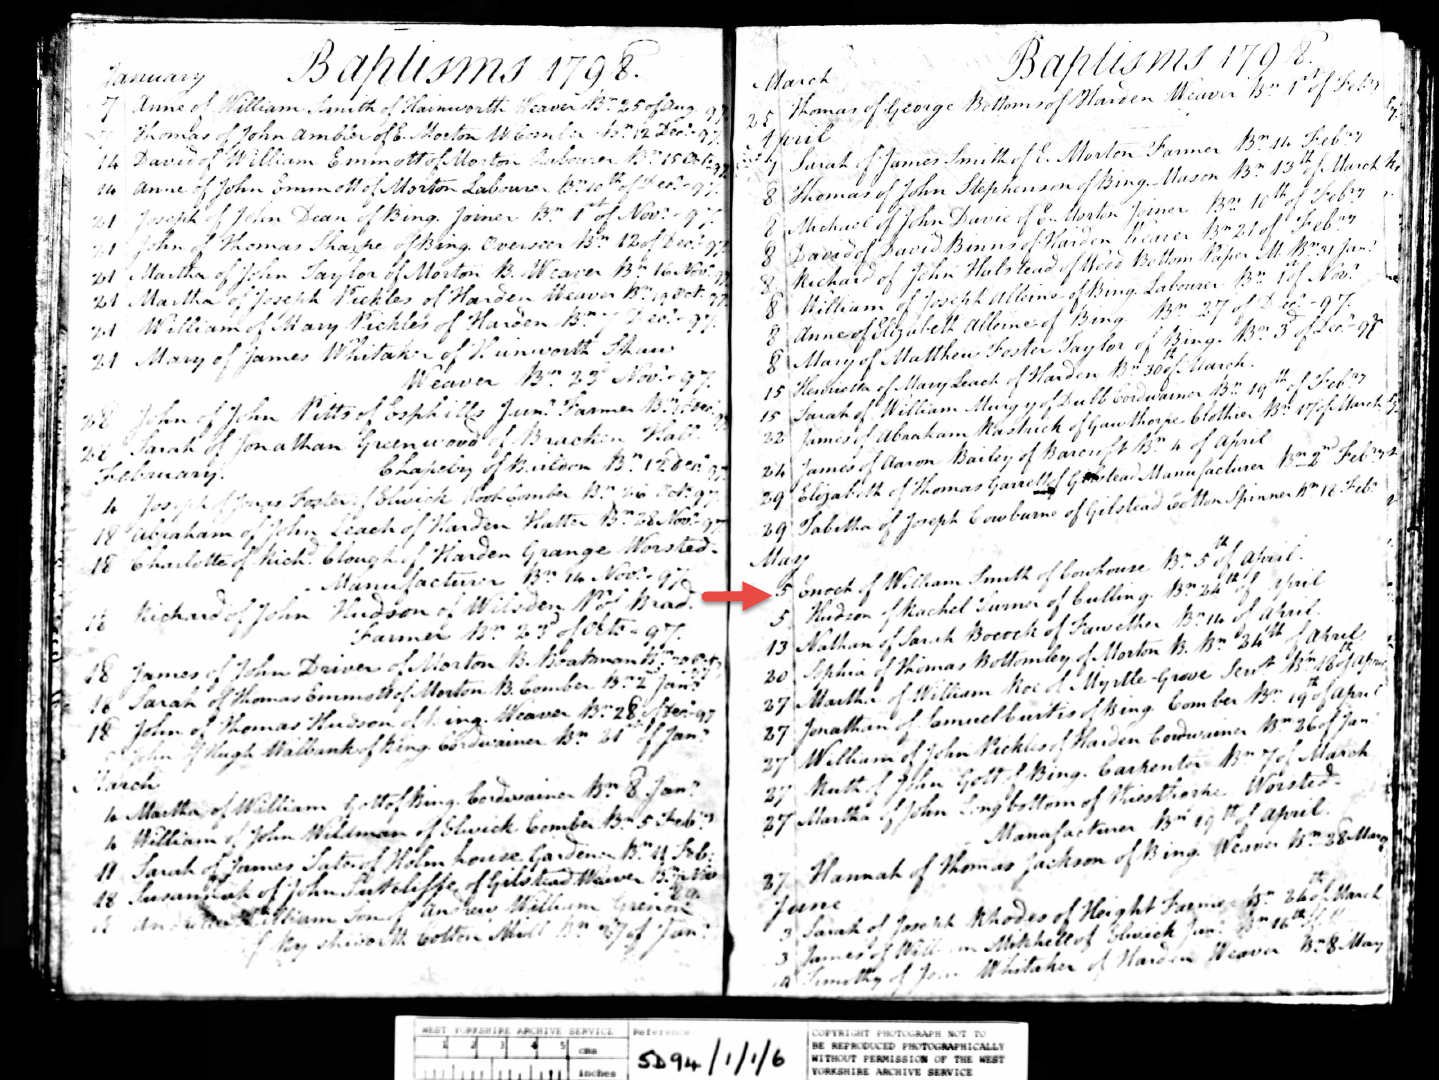 Baptisms 1798.
January
7 Anne of William Smith of Hainworth Weaver Bn. 25 of Aug. 97
7 Thomas of John Ambler of E. Morton W. Comber Bn. 12 Decr. 97.
14 David of William Emmott of Morton Labourer Bn. 15 Octr. 97
14 Anne of John Emmott of Morton Labourer Bn. 10th of Decr. 97.
21 Joseph of John Dean of Bing. Joiner Bn. 1st of Novr. 97.
21 John of Thomas Sharpe of Bing. Overseer Bn. 12 of Decr. 97
21 Martha of John Taylor of Morton B. Weaver Bn. 16 Novr. 97
21 Martha of Joseph Nickles of Harden Weaver Bn. 19 Oct. 97.
21 William of Mary Nickles of Harden Bn. 7 Decr. 97.
21 Mary of James Whitaker of Hainworth Shaw
Weaver Bn. 23d Novr. 97.
28 John of John Pitts of Esphills Junr. Farmer Bn. Decr.
28 Sarah of Jonathan Greenwood of Bracken Hall
Chapelry of Bn. 12 Decr. 97
February.
4 Joseph of Jonas Foster of Elwick Comber Bn. 26 Octr. 97
18 Abraham of John Leach of Harden Hatter Bn. 28 Novr. 97
18 Charlotte of Richd. Clough of Harden Grange Worsted-
Manufacturer Bn. 14 Novr. 97
18 Richard of John Hudson of Wilsden Psh. of Brad.
Farmer Bn. 23d of Octr. 97.
18 James of John Driver of Morton B. Boatman Bn. 20
18 Sarah of Thomas Emmott of Morton B. Comber Bn. 2d Janry
18 John of Thomas Hudson of Bing. Weaver Bn. 28 of Decr. 97
John of Hugh Walbank of Bing. Cordwainer Bn. 21st of Janry
March
4 Martha of William Gott of Bing. Cordwainer Bn. 8 Janry
4 William of John Willman of Elwick Comber Bn. 5 Febry
11 Sarah of James Slater of Holm house Gardener Bn. 11 Feb.
18 Susannah of John Sutcliffe of Gilstead Weaver Bn. Nov
William Son of Andrew William
of Cotton Mill Bn. 27 of Janry
Baptisms 1798.
March
25 Thomas of George Bottoms of Harden Weaver Bn. 1st of Febry
April
Sarah of James Smith of E. Morton Farmer Bn. 14 Febry
8 Thomas of John Stephenson of Bing. Mason Bn. 13th of March
8 Michael of John Davie of E. Morton Joiner Bn. 10th of Febry
8 David of David Binns of Harden Weaver Bn. 21 of Febry
8 Richard of John Halstead of Wood Bottom Paper M. Bn. 31 Janry
8 William of Joseph Alleine of Bing. Labourer Bn. 1 of Novr.
8 Anne of Elizabeth Alleine of Bing Bn. 27 of Decr. 97.
8 Mary of Matthew Foster Taylor of Bing. Bn. 3d of Decr. 97
15 Henrietta of Mary Leach of Harden Bn. 30th of March.
15 Sarah of William of Dubb Cordwainer Bn. 19th of Febry
22 James of Abraham Rastrick of Gawthorpe Clothier Bn. 17 of March
24 James of Aaron Bailey of Barcroft Bn. 4 of April
29 Elizabeth of Thomas Garrett of Gilstead Manufacturer Bn. 2nd Febry
29 Tabitha of Joseph Cowburne of Gilstead Cotton Spinner Bn. 12 Feb.
May
5 Enoch of William Smith of Cowhouse Bn. 5th of April.
5 Hudson of Rachel Turner of Culling. Bn. 24th of April
13 Nathan of Sarah Bocock of Fawether Bn. 14 of April.
20 Sophia of Thomas Bottomley of Morton B. Bn. 24th of April
27 Martha of William Roe of Myrtle Grove Servt. Bn. 18th of April
27 Jonathan of Samuel Curtis of Bing. Comber Bn. 19th of April
27 William of John Nickles of Harden Cordwainer Bn. 26 of Janry
27 Ruth of John Gott of Bing. Carpenter Bn. 7 of March
27 Martha of John Longbottom of Worsted-
Manufacturer Bn. 19th of April.
27 Hannah of Thomas Jackson of Bing. Weaver Bn. 28 March
June
3 Sarah of Joseph Rhodes of Height Farmer Bn. 24th of March
3 James of William Mitchell of Elwick Junr. Bn. 16th of
Timothy of John Whitaker of Harden Weaver Bn. 8 May
WEST YORKSHIRE ARCHIVE SERVICE
1 2 3 4 5 cms
inches
Reference
5D94/1/1/6
COPYRIGHT PHOTOGRAPH NOT TO
BE REPRODUCED PHOTOGRAPHICALLY
WITHOUT PERMISSION OF THE WEST
YORKSHIRE ARCHIVE SERVICE